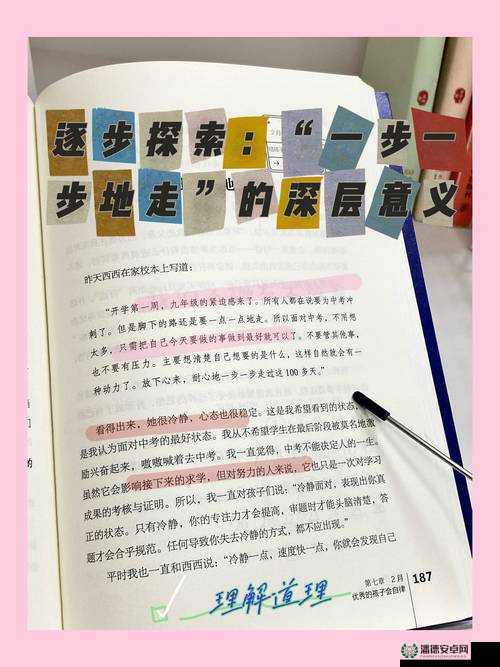 逐步探索：“一步一
步地走”的深层意义
2月
昨天西西在家校本上写道：
“开学第一周，九年级的紧迫感来了。所有人都在说要为中考冲
刺了。但是脚下的路还是要一点一点地走。所以面对中考，不用想
太多，只需把自己今天要做的事做到最好就可以了。不要管其他事，
也不要有压力。主要想清楚自己想要的是什么，这样自然就会有一
种动力了。放下心来，耐心地一步一步走过这100多天。”
看得出来，她很冷静，心态也很稳定。这是我希望看到的状态，
是我认为面对中考的最好状态。我从不希望学生在最后阶段被莫名地激
励兴奋起来，嗷嗷喊着去中考。我一直觉得，中考不能决定人的一生。
虽然它会影响接下来的求学，但对努力的人来说，它也只是一次对学习
成果的考核与证明。所以，我一直对孩子们说：“冷静面对，表现出你真
正的状态。只有冷静，你的专注力才会提高，审题时才能头脑清楚，答
题才会合乎规范。任何导致你失去冷静的方式，都不应出现。”
平时我也一直和西西说：“冷静一点，速度快一点，你就会发现自己
理解道理
第七章 2月
优秀的孩子会自律
187
潘德安卓网